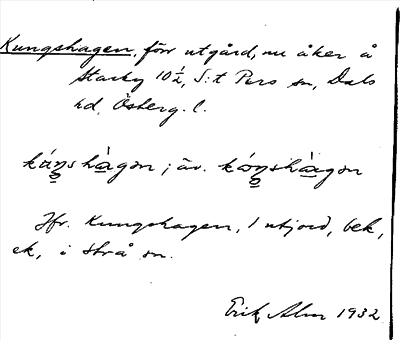 Kungshagen, förr utgård, nu åker å
Starby 10½, S:t Pers sn, Dals
hd, Österg. l.
Jfr. Kungshagen, 1 utjord, bek,
ek, i Strå sn.
Erik Alm 1932